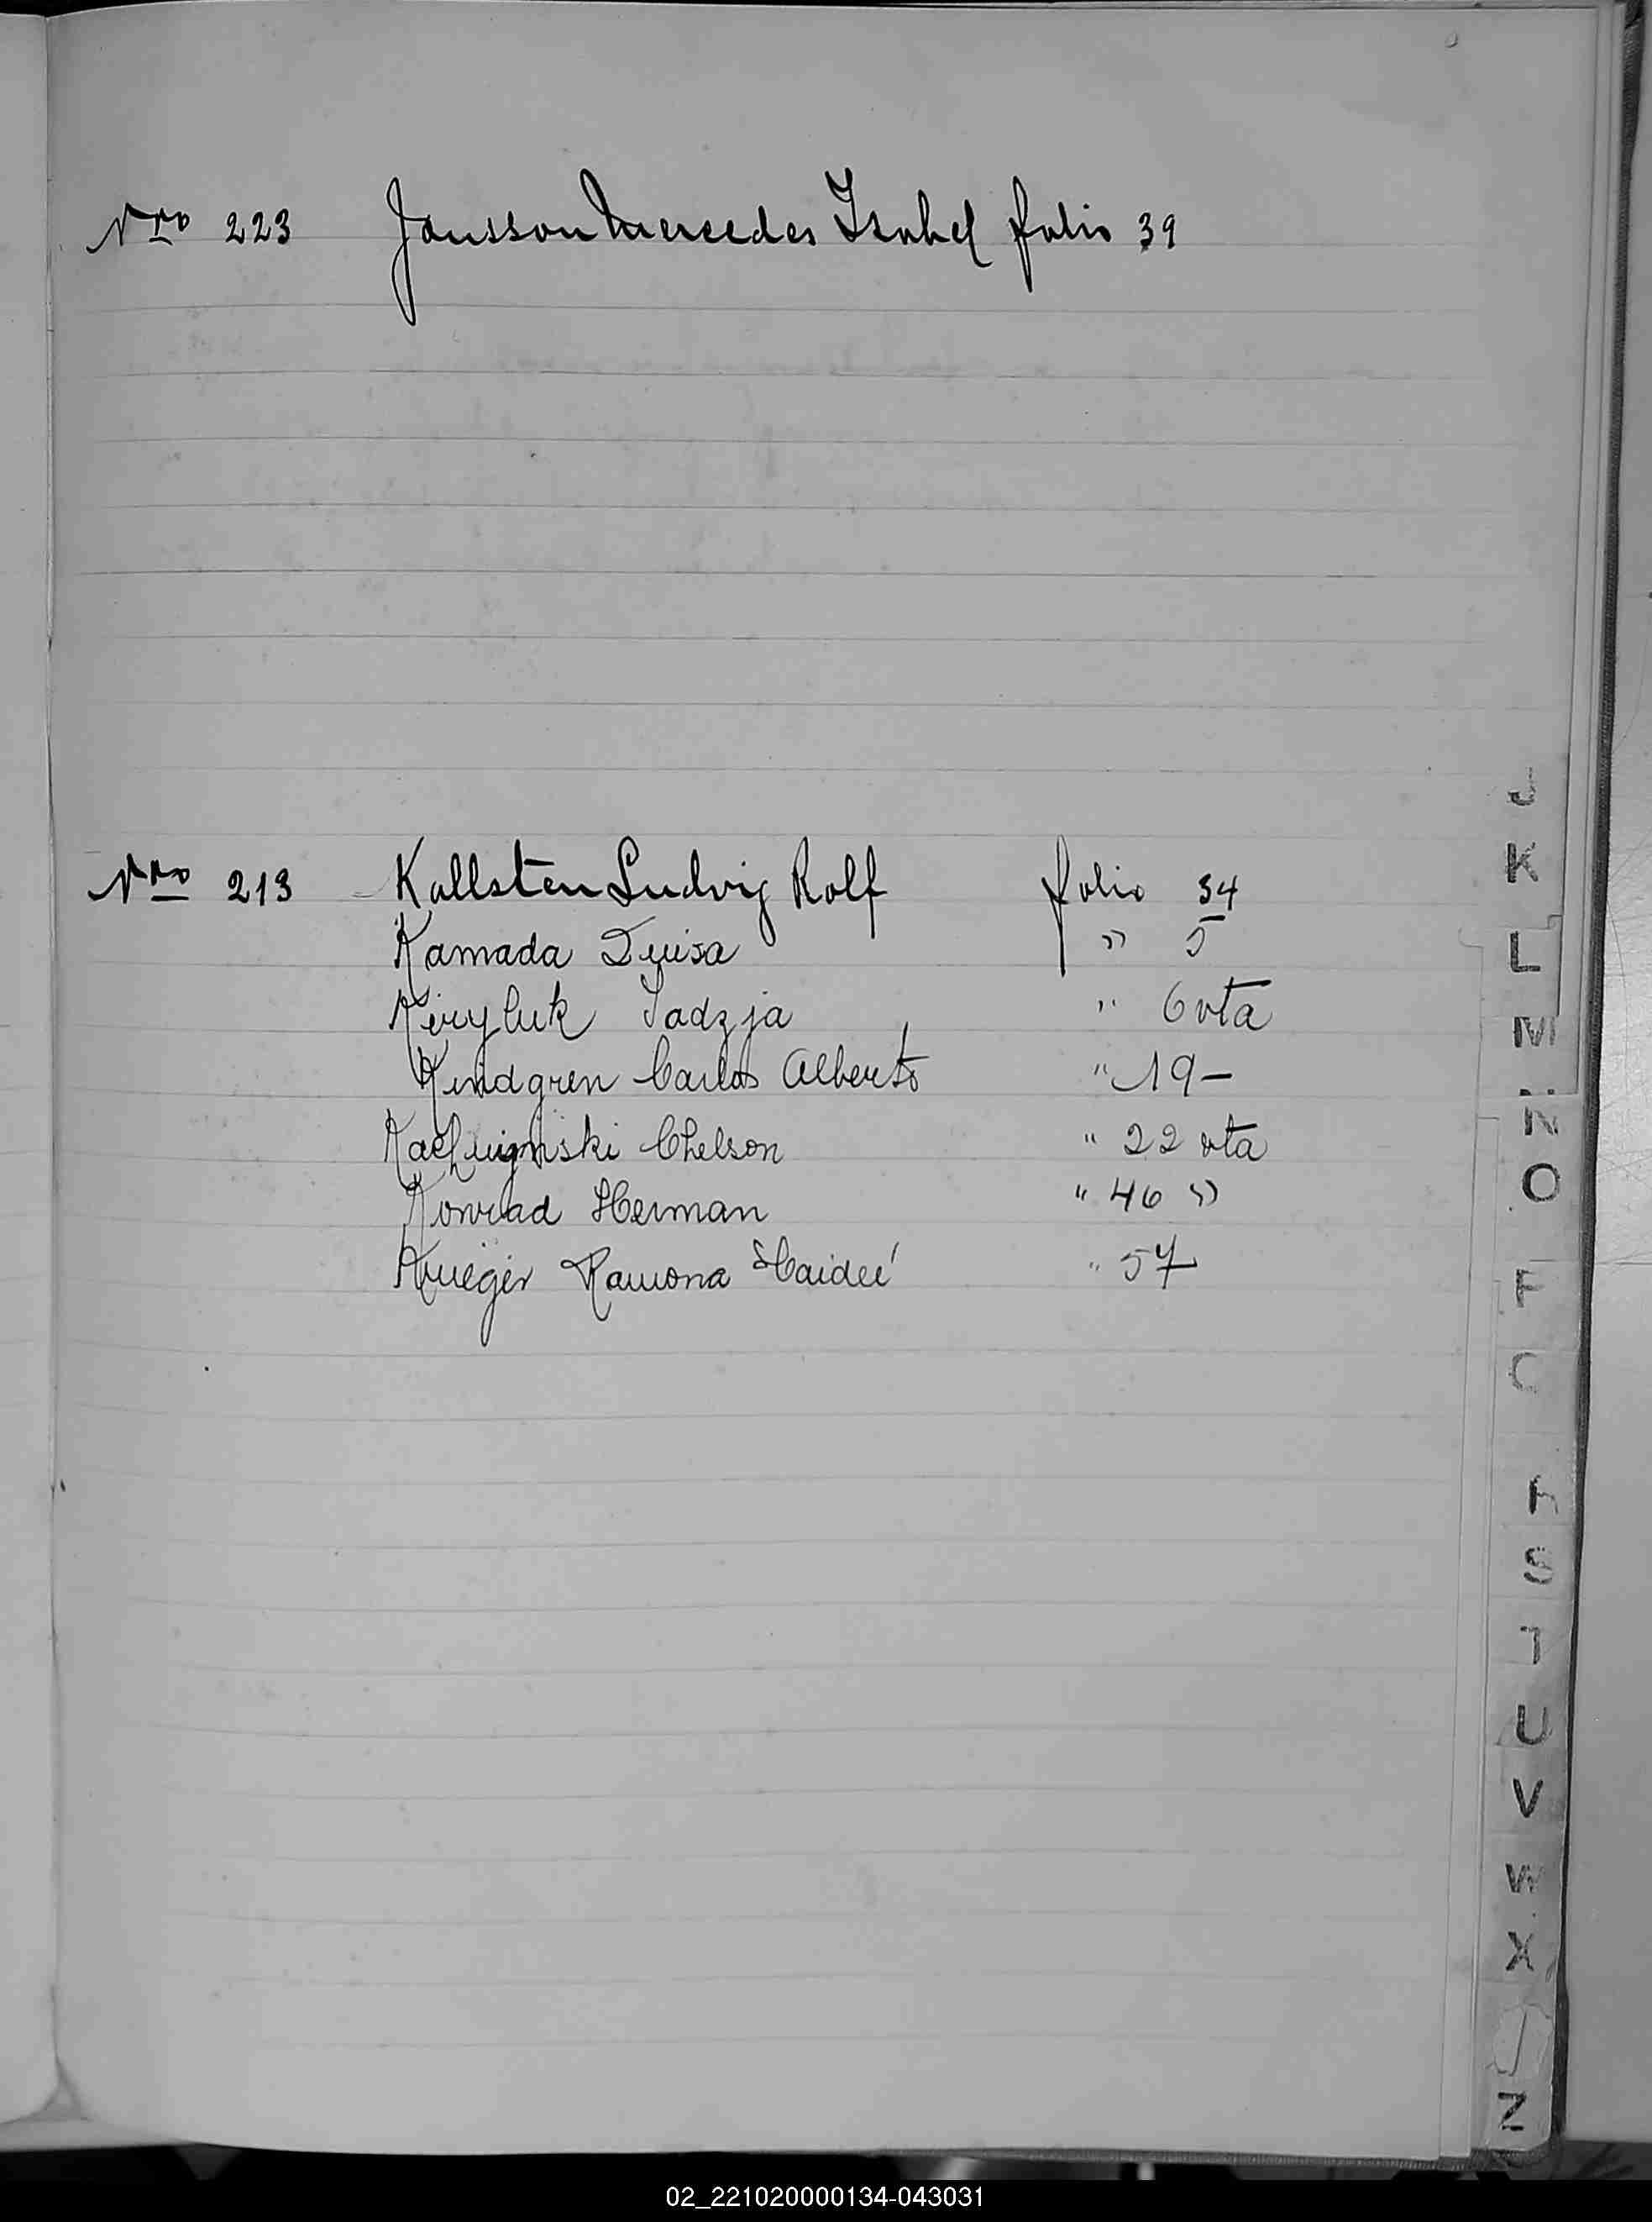 Nro 223 Jansson Mercedes Isabel folio 39
Nro 213 Kallsten Ludvig Rolf folio 34
Kamada Luisa " 5
Kiryluk Jadzja " 6 vta
Kindgren Carlos Alberto " 19 -
Chelson " 22 vta
Konrad Herman " 46 "
Krueger Ramona Haideé " 57
J
K
L
M
N
O
S
U
V
W
X
Z
02_221020000134-043031